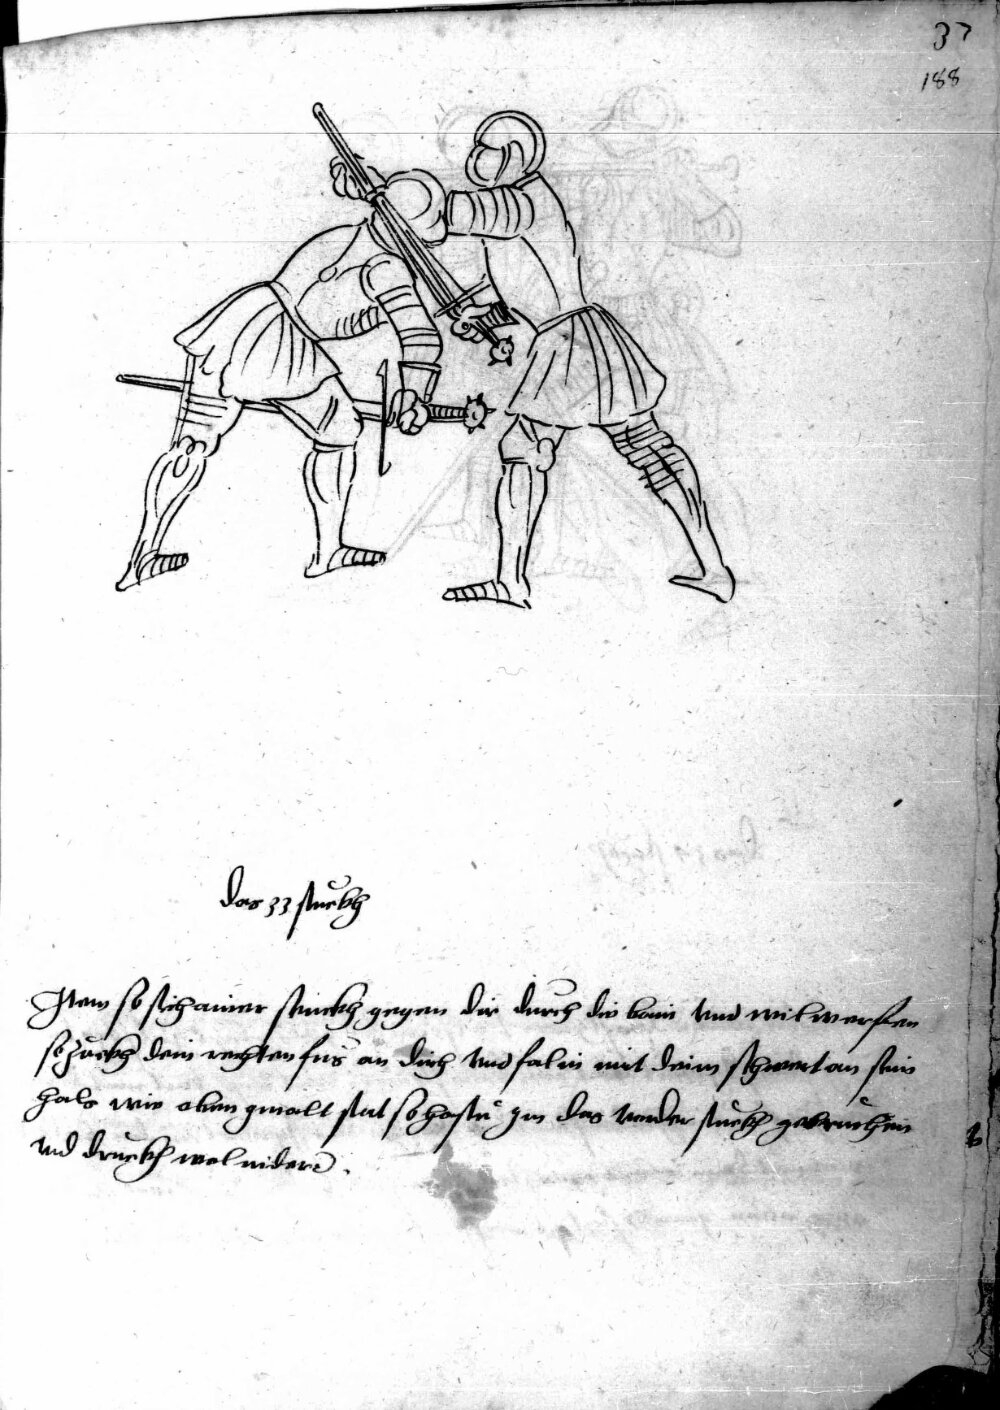 37
188
das 33 stuckh
Item so sich ainer struckh gegen dir durch die bain und wil werffen
so zuckh dein rechten fus an dich und fal in mit deim schwert an sein
hals wie oben gmalt stat so hastu im das voder stuckh gebruchen
und druckh wol nider